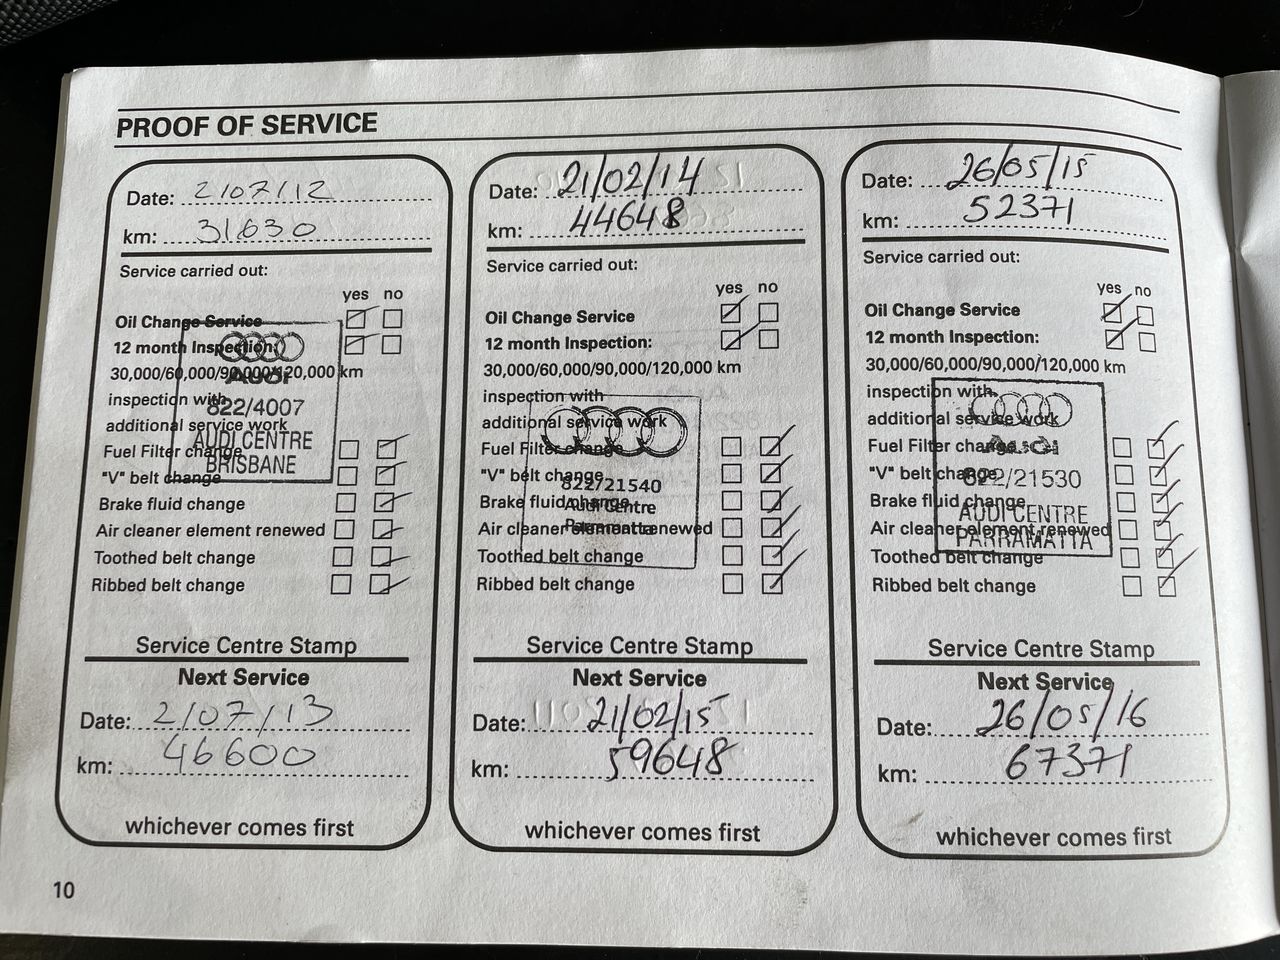 PROOF OF SERVICE
Date: 2/07/12
km: 31630
Service carried out:
yes no
Oil Change Service
12 month Inspection:
30,000/60,000/90,000/120,000 km
inspection with
additional service work
Fuel Filter change
"V" belt change
Brake fluid change
Air cleaner element renewed
Toothed belt change
Ribbed belt change
Audi
822/4007
AUDI CENTRE
BRISBANE
Service Centre Stamp
Next Service
Date: 2/07/13
km: 46600
whichever comes first
Date: 21/02/14
km: 44648
Service carried out:
yes no
Oil Change Service
12 month Inspection:
30,000/60,000/90,000/120,000 km
inspection with
additional service work
Fuel Filter change
"V" belt change
Brake fluid change
Air cleaner element renewed
Toothed belt change
Ribbed belt change
822/21540
Audi Centre
Parramatta
Service Centre Stamp
Next Service
Date: 21/02/15
km: 59648
whichever comes first
Date: 26/05/15
km: 52371
Service carried out:
yes no
Oil Change Service
12 month Inspection:
30,000/60,000/90,000/120,000 km
inspection with
additional service work
Fuel Filter change
"V" belt change
Brake fluid change
Air cleaner element renewed
Toothed belt change
Ribbed belt change
Audi
822/21530
AUDI CENTRE
PARRAMATTA
Service Centre Stamp
Next Service
Date: 26/05/16
km: 67371
whichever comes first
10